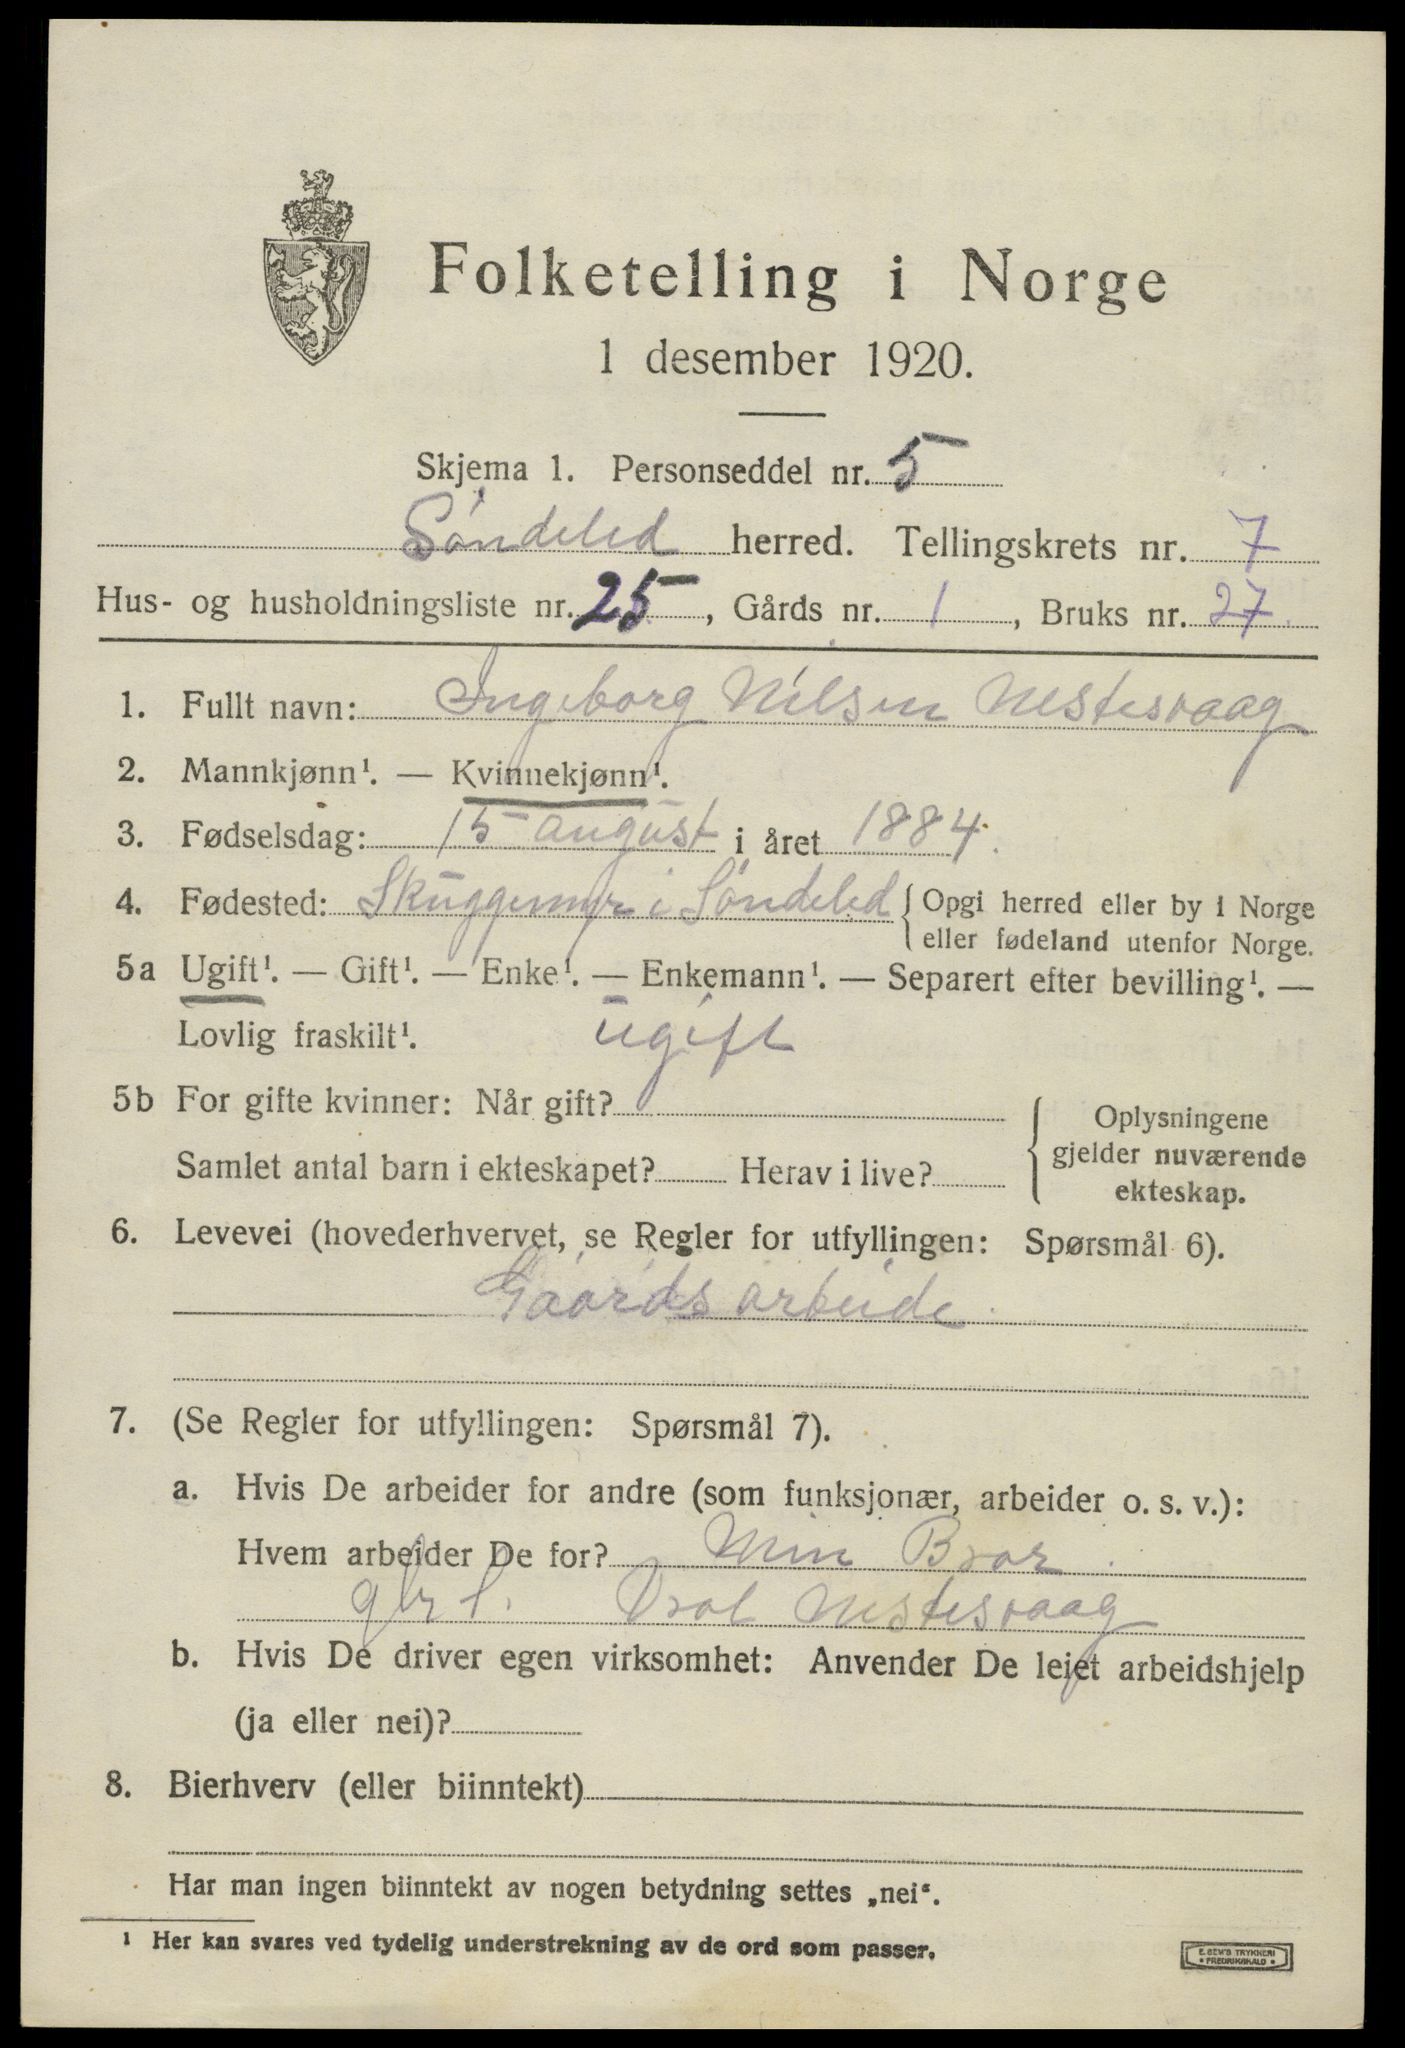 Folketelling i Norge
1 desember 1920.
Skjema 1. Personseddel nr. 5
Søndeled herred. Tellingskrets nr. 7
Hus- og husholdningsliste nr. 25, Gårds nr. 1, Bruks nr. 27
1. Fullt navn: Ingeborg Nilsen Nestesvaag
2. Mannkjønn¹. — Kvinnekjønn¹.
3. Fødselsdag: 15 august i året 1884.
4. Fødested: Skuggemyr i Søndeled { Opgi herred eller by i Norge
eller fødeland utenfor Norge.
5a Ugift¹. — Gift¹. — Enke¹. — Enkemann¹. — Separert efter bevilling¹. —
Lovlig fraskilt¹. ugift
5b For gifte kvinner: Når gift?
Samlet antal barn i ekteskapet? Herav i live?
{ Oplysningene
gjelder nuværende
ekteskap.
6. Levevei (hovederhvervet, se Regler for utfyllingen: Spørsmål 6).
Gaardsarbeide.
7. (Se Regler for utfyllingen: Spørsmål 7).
a. Hvis De arbeider for andre (som funksjonær, arbeider o. s. v.):
Hvem arbeider De for? Min Bror.
Nestesvaag
b. Hvis De driver egen virksomhet: Anvender De leiet arbeidshjelp
(ja eller nei)?
8. Bierhverv (eller biinntekt)
Har man ingen biinntekt av nogen betydning settes „nei“.
¹ Her kan svares ved tydelig understrekning av de ord som passer.
E. SEM'S TRYKKERI
• FREDRIKSHALD •